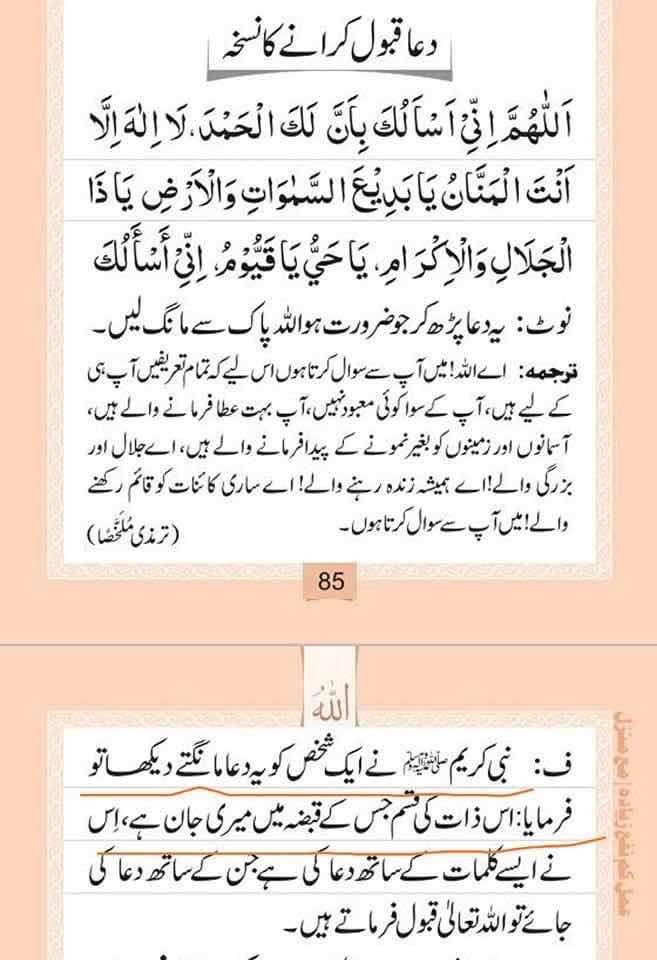 دعا قبول کرانے کا نسخہ
اَللّٰهُمَّ اِنِّیْ اَسْاَلُكَ بِاَنَّ لَكَ الْحَمْدَ، لَا اِلٰهَ اِلَّا
اَنْتَ الْمَنَّانُ یَا بَدِیْعَ السَّمٰوَاتِ وَالْاَرْضِ یَا ذَا
الْجَلَالِ وَالْاِكْرَامِ، یَا حَیُّ یَا قَیُّوْمُ، اِنِّیْ أَسْأَلُكَ
نوٹ: یہ دعا پڑھ کر جو ضرورت ہو اللہ پاک سے مانگ لیں۔
ترجمہ: اے اللہ! میں آپ سے سوال کرتا ہوں اس لیے کہ تمام تعریفیں آپ ہی
کے لیے ہیں، آپ کے سوا کوئی معبود نہیں، آپ بہت عطا فرمانے والے ہیں،
آسمانوں اور زمینوں کو بغیر نمونے کے پیدا فرمانے والے ہیں، اے جلال اور
بزرگی والے! اے ہمیشہ زندہ رہنے والے! اے ساری کائنات کو قائم رکھنے
والے! میں آپ سے سوال کرتا ہوں۔ (ترمذی مُلَخَّصًا)
85
اللّٰهُ
ف: نبی کریم ﷺ نے ایک شخص کو یہ دعا مانگتے دیکھا تو
فرمایا: اس ذات کی قسم جس کے قبضہ میں میری جان ہے، اِس
نے ایسے کلمات کے ساتھ دعا کی ہے جن کے ساتھ دعا کی
جائے تو اللہ تعالیٰ قبول فرماتے ہیں۔
عمل کم نفع زیادہ | مع منزل